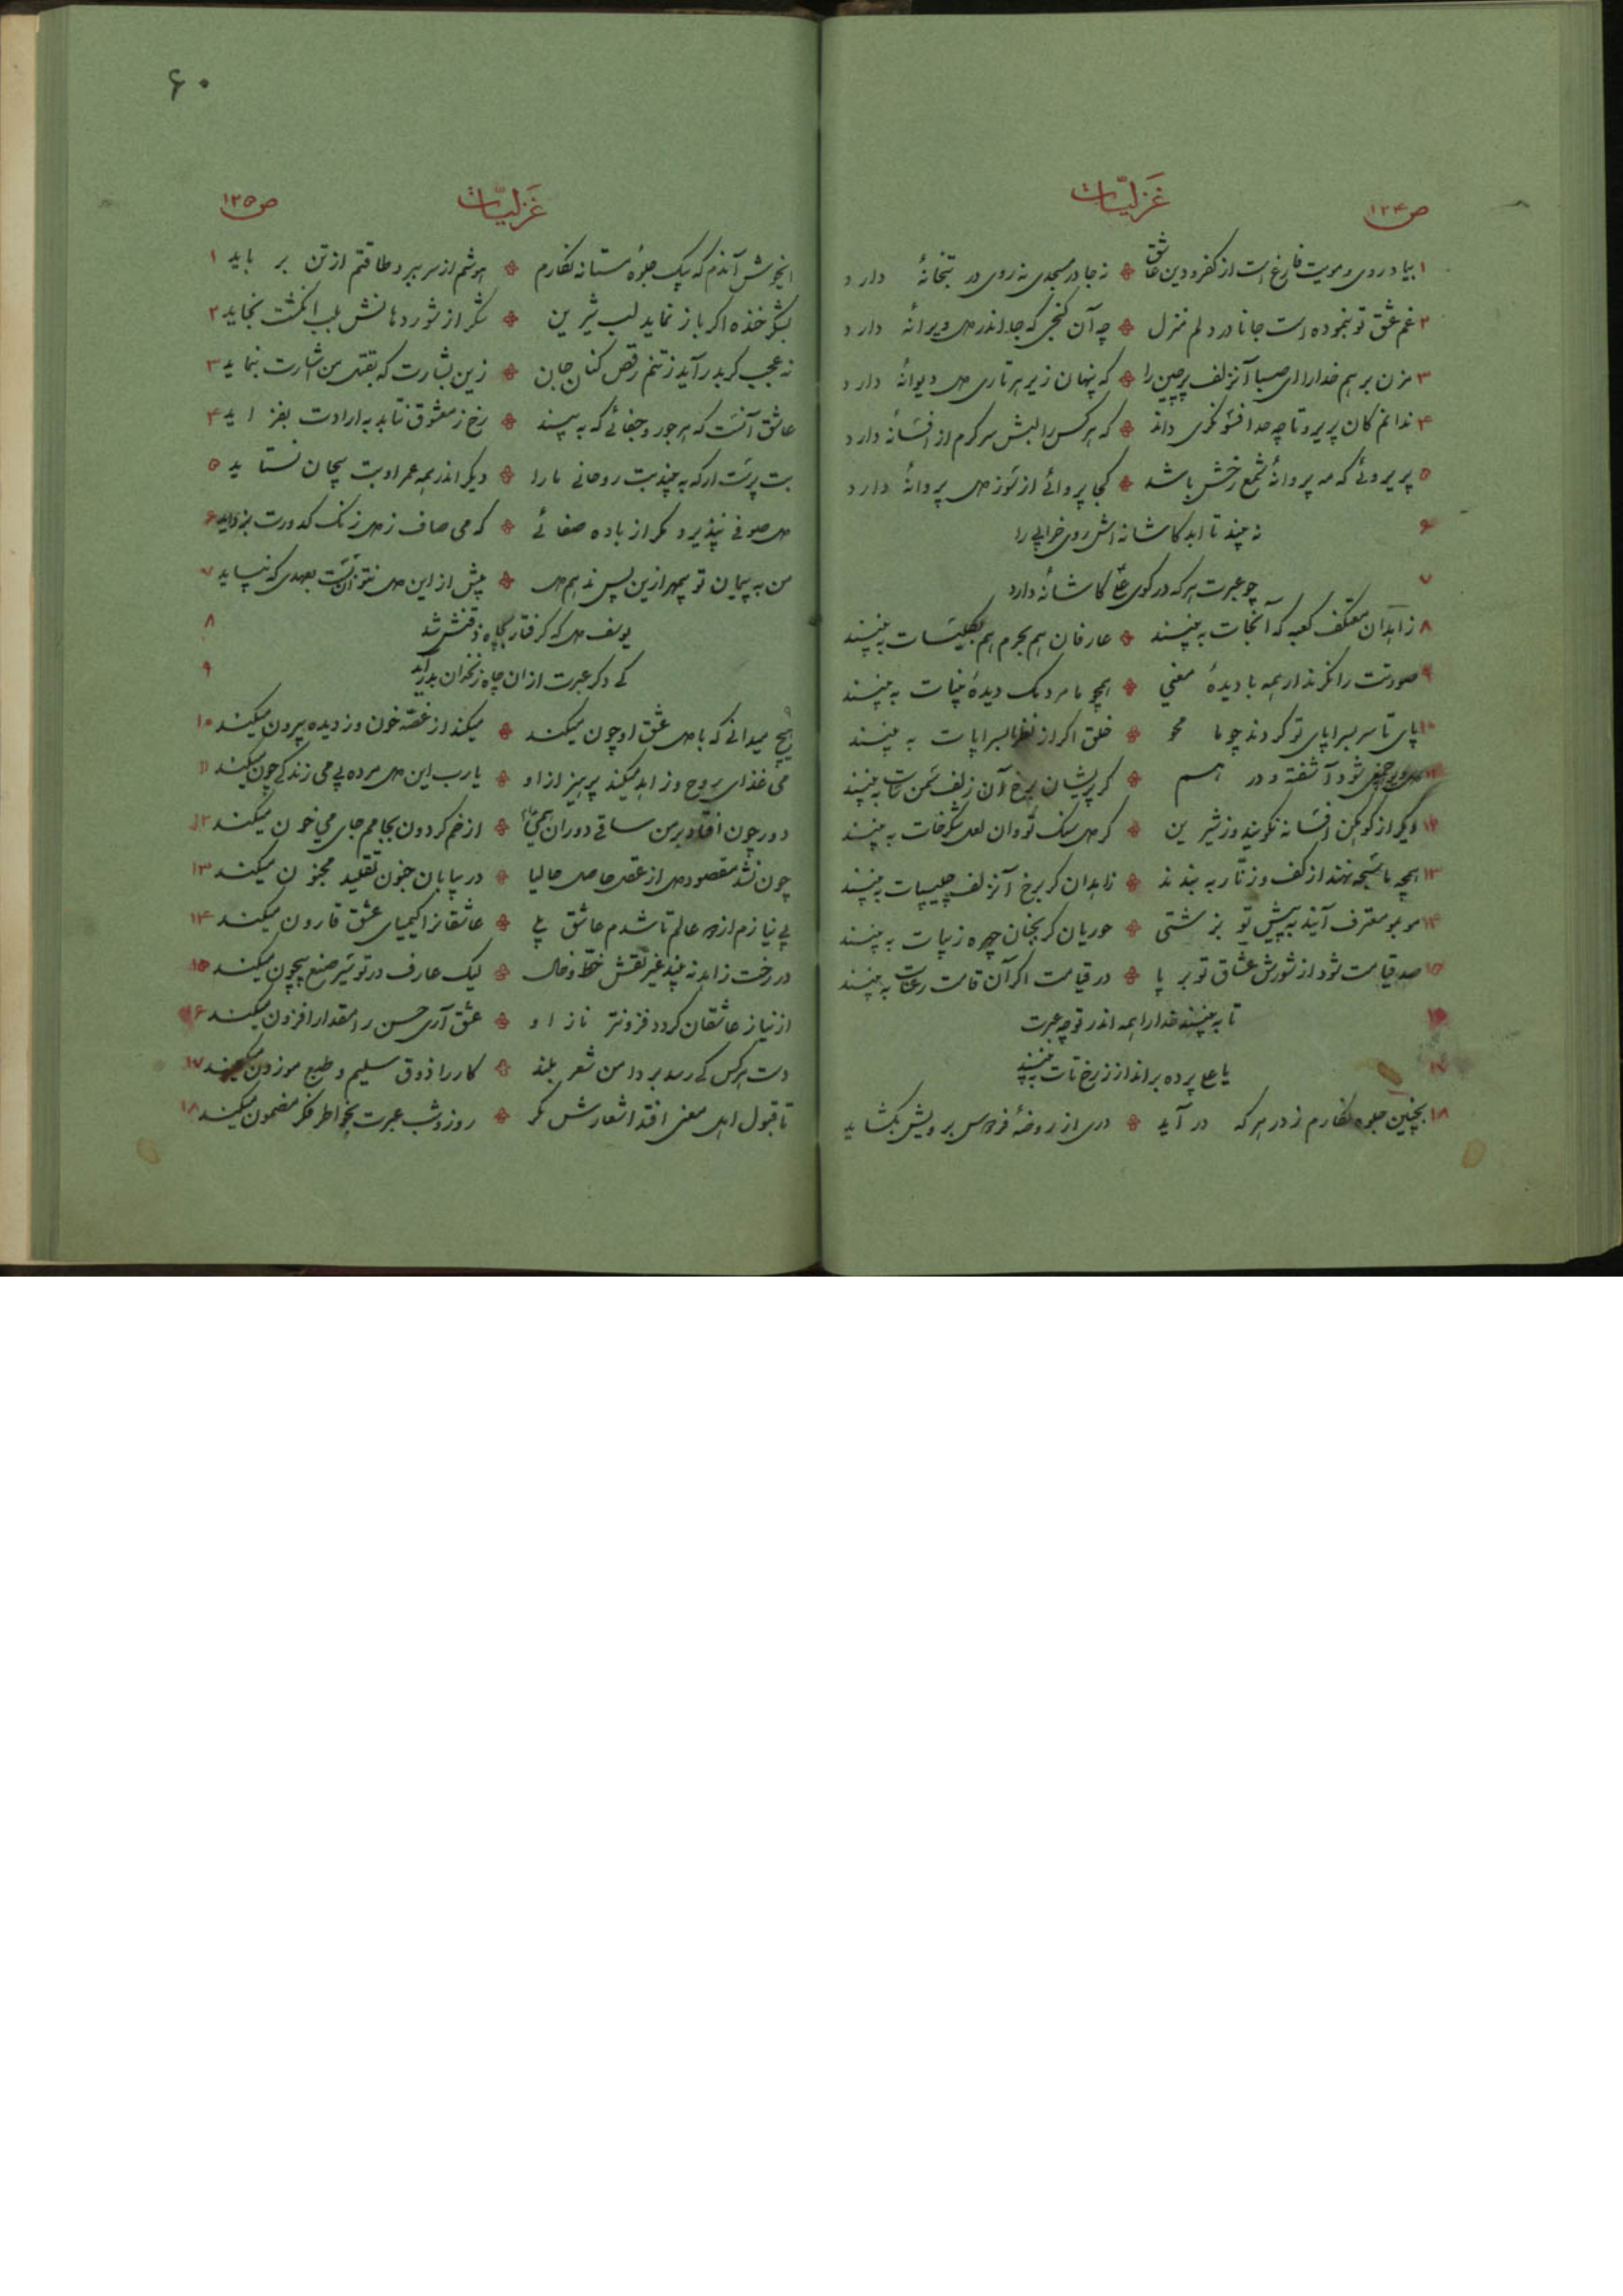 غزلیّات
ص ۱۲۴
۱ بیاد روی و مویت فارغ است از کفر و دین عاشق ❊ نه جا در مسجدی نه روی در بتخانهٔ دارد
۲ غم عشق تو بنموده است جانا در دلم منزل ❊ چه آن گنجی که جا اندر دل ویرانهٔ دارد
۳ مزن بر هم خدا را ای صبا آنزلف پرچین را ❊ که پنهان زیر هر تاری دل دیوانهٔ دارد
۴ ندانم کان پریرو تا چه حد افسونگری داند ❊ که هر کس را لبش سرگرم از افسانهٔ دارد
۵ پریروئی که مه پروانهٔ شمع رخش باشد ❊ کجا پروائی از سوز دل پروانهٔ دارد
۶ نه بیند تا ابد کاشانه اش روی خرابی را
۷ چو عبرت هر که در کوی علی کاشانهٔ دارد
۸ زاهدان معتکف کعبه که آنجات به بینند ❊ عارفان هم بحرم هم بکلیسات به بینند
۹ صورتت را نگرند ار همه با دیدهٔ معنی ❊ همچو ما مردمک دیدهٔ بینات به بینند
۱۰ پای تا سر بسراپای تو گردند چو ما محو ❊ خلق اگر از نظر ما بسراپات به بینند
۱۱ شود آشفته و در هم ❊ گر پریشان برخ آن زلف سمن سات به بینند
۱۲ دیگر از کوهکن افسانه نگویند وز شیرین ❊ گر دل سنگ تو وان لعل شکرخات به بینند
۱۳ همچو ما سبحه نهند از کف و زنّار به بندند ❊ زاهدان گر برخ آنزلف چلیپات به بینند
۱۴ مو بمو معترف آیند به پیش تو بزشتی ❊ حوریان گر بجنان چهره زیبات به بینند
۱۵ صد قیامت شود از شورش عشاق تو بر پا ❊ در قیامت اگر آن قامت رعنات به بینند
۱۶ تا به بینند خدا را همه اندر تو چه عبرت
۱۷ یا علی پرده برانداز ز رخ تات به بینند
۱۸ بچنین جلوه نگارم ز در هر که در آید ❊ دری از روضهٔ فردوس برویش بگشاید
۶۰
غزلیّات
ص ۱۲۵
ایخوش آندم که بیک جلوهٔ مستانه نگارم ❊ هوشم از سر ببرد طاقتم از تن برباید ۱
بشکر خنده اگر باز نماید لب شیرین ❊ شکر از شور دهانش بلب انگشت بخاید ۲
نه عجب گر بدر آید ز تنم رقص کنان جان ❊ زین بشارت که بقتل من اشارت بنماید ۳
عاشق آنست که هر جور و جفائی که به بیند ❊ رخ ز معشوق نتابد به ارادت بفزاید ۴
بت پرست ار که به بیند بت روحانی ما را ❊ دیگر اندر همه عمر او بت بیجان نستاید ۵
دل صوفی نپذیرد مگر از باده صفائی ❊ که می صاف ز دل زنگ کدورت بزداید ۶
من به پیمان تو بیمهر ازین پس ندهم دل ❊ بیش از این دل نتوان بست بعهدی که نپاید ۷
یوسف دل که گرفتار بچاه ذقنش شد ۸
کی دگر عبرت از آن چاه زنخدان بدر آید ۹
هیچ میدانی که با دل عشق او چون میکند ❊ میکند از غصّه خون وز دیده بیرون میکند ۱۰
می غذای روح و زاهد میکند پرهیز از او ❊ یا رب این دل مرده بی می زندگی چون میکند ۱۱
دور چون افتد برمن ساقی دوران همی ❊ از خم گردون بجامم جای می خون میکند ۱۲
چون نشد مقصود دل از عقل حاصل حالیا ❊ در بیابان جنون تقلید مجنون میکند ۱۳
بی نیازم از دو عالم تا شدم عاشق بلی ❊ عاشقانرا کیمیای عشق قارون میکند ۱۴
در رخت زاهد نه بیند غیر نقش خطّ و خال ❊ لیک عارف در تو سیر صنع بیچون میکند ۱۵
از نیاز عاشقان گردد فزونتر ناز او ❊ عشق آری حسن را مقدار افزون میکند ۱۶
دست هر کس کی رسد بر دامن شعر بلند ❊ کار را ذوق سلیم و طبع موزون میکند ۱۷
تا قبول اهل معنی افتد اشعارش مگر ❊ روز و شب عبرت بخاطر فکر مضمون میکند ۱۸